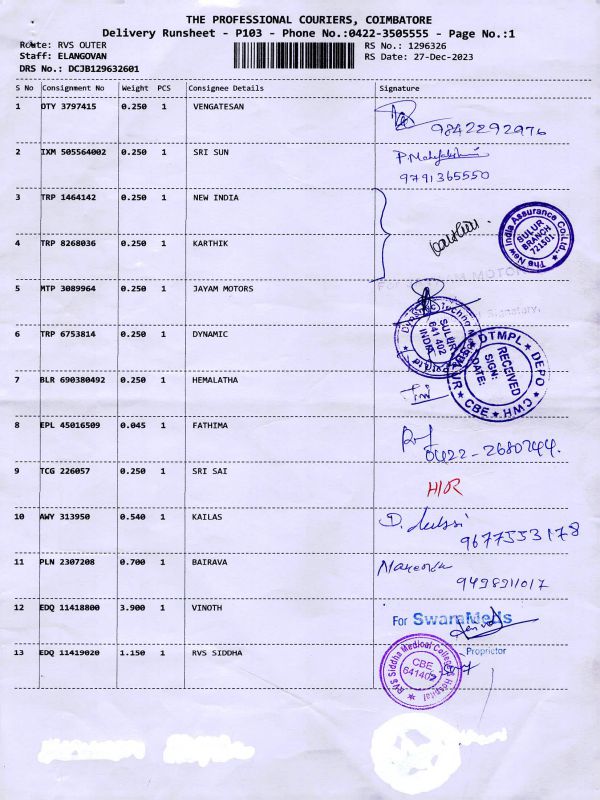 THE PROFESSIONAL COURIERS, COIMBATORE
Delivery Runsheet - P103 - Phone No.:0422-3505555 - Page No.:1
Route: RVS OUTER RS No.: 1296326
Staff: ELANGOVAN RS Date: 27-Dec-2023
DRS No.: DCJB129632601
S No Consignment No Weight PCS Consignee Details Signature
1 OTY 3797415 0.250 1 VENGATESAN
9842292976
2 IXM 505564002 0.250 1 SRI SUN
9791365550
3 TRP 1464142 0.250 1 NEW INDIA
The New India Assurance Co.Ltd.,
SULUR
BRANCH
721501
4 TRP 8268036 0.250 1 KARTHIK
5 MTP 3089964 0.250 1 JAYAM MOTORS
SULUR
641 402
INDIA
6 TRP 6753814 0.250 1 DYNAMIC
DTMPL DEPO
RECEIVED
SIGN:
DATE:
CBE HMC
7 BLR 690380492 0.250 1 HEMALATHA
8 EPL 45016509 0.045 1 FATHIMA
0422-2680744.
9 TCG 226057 0.250 1 SRI SAI
10 AWY 313950 0.540 1 KAILAS
9677553178
11 PLN 2307208 0.700 1 BAIRAVA
12 EDQ 11418800 3.900 1 VINOTH
For SwaraMeds
Proprietor
13 EDQ 11419020 1.150 1 RVS SIDDHA
RVS Siddha Medical College & Hospital
CBE
641402